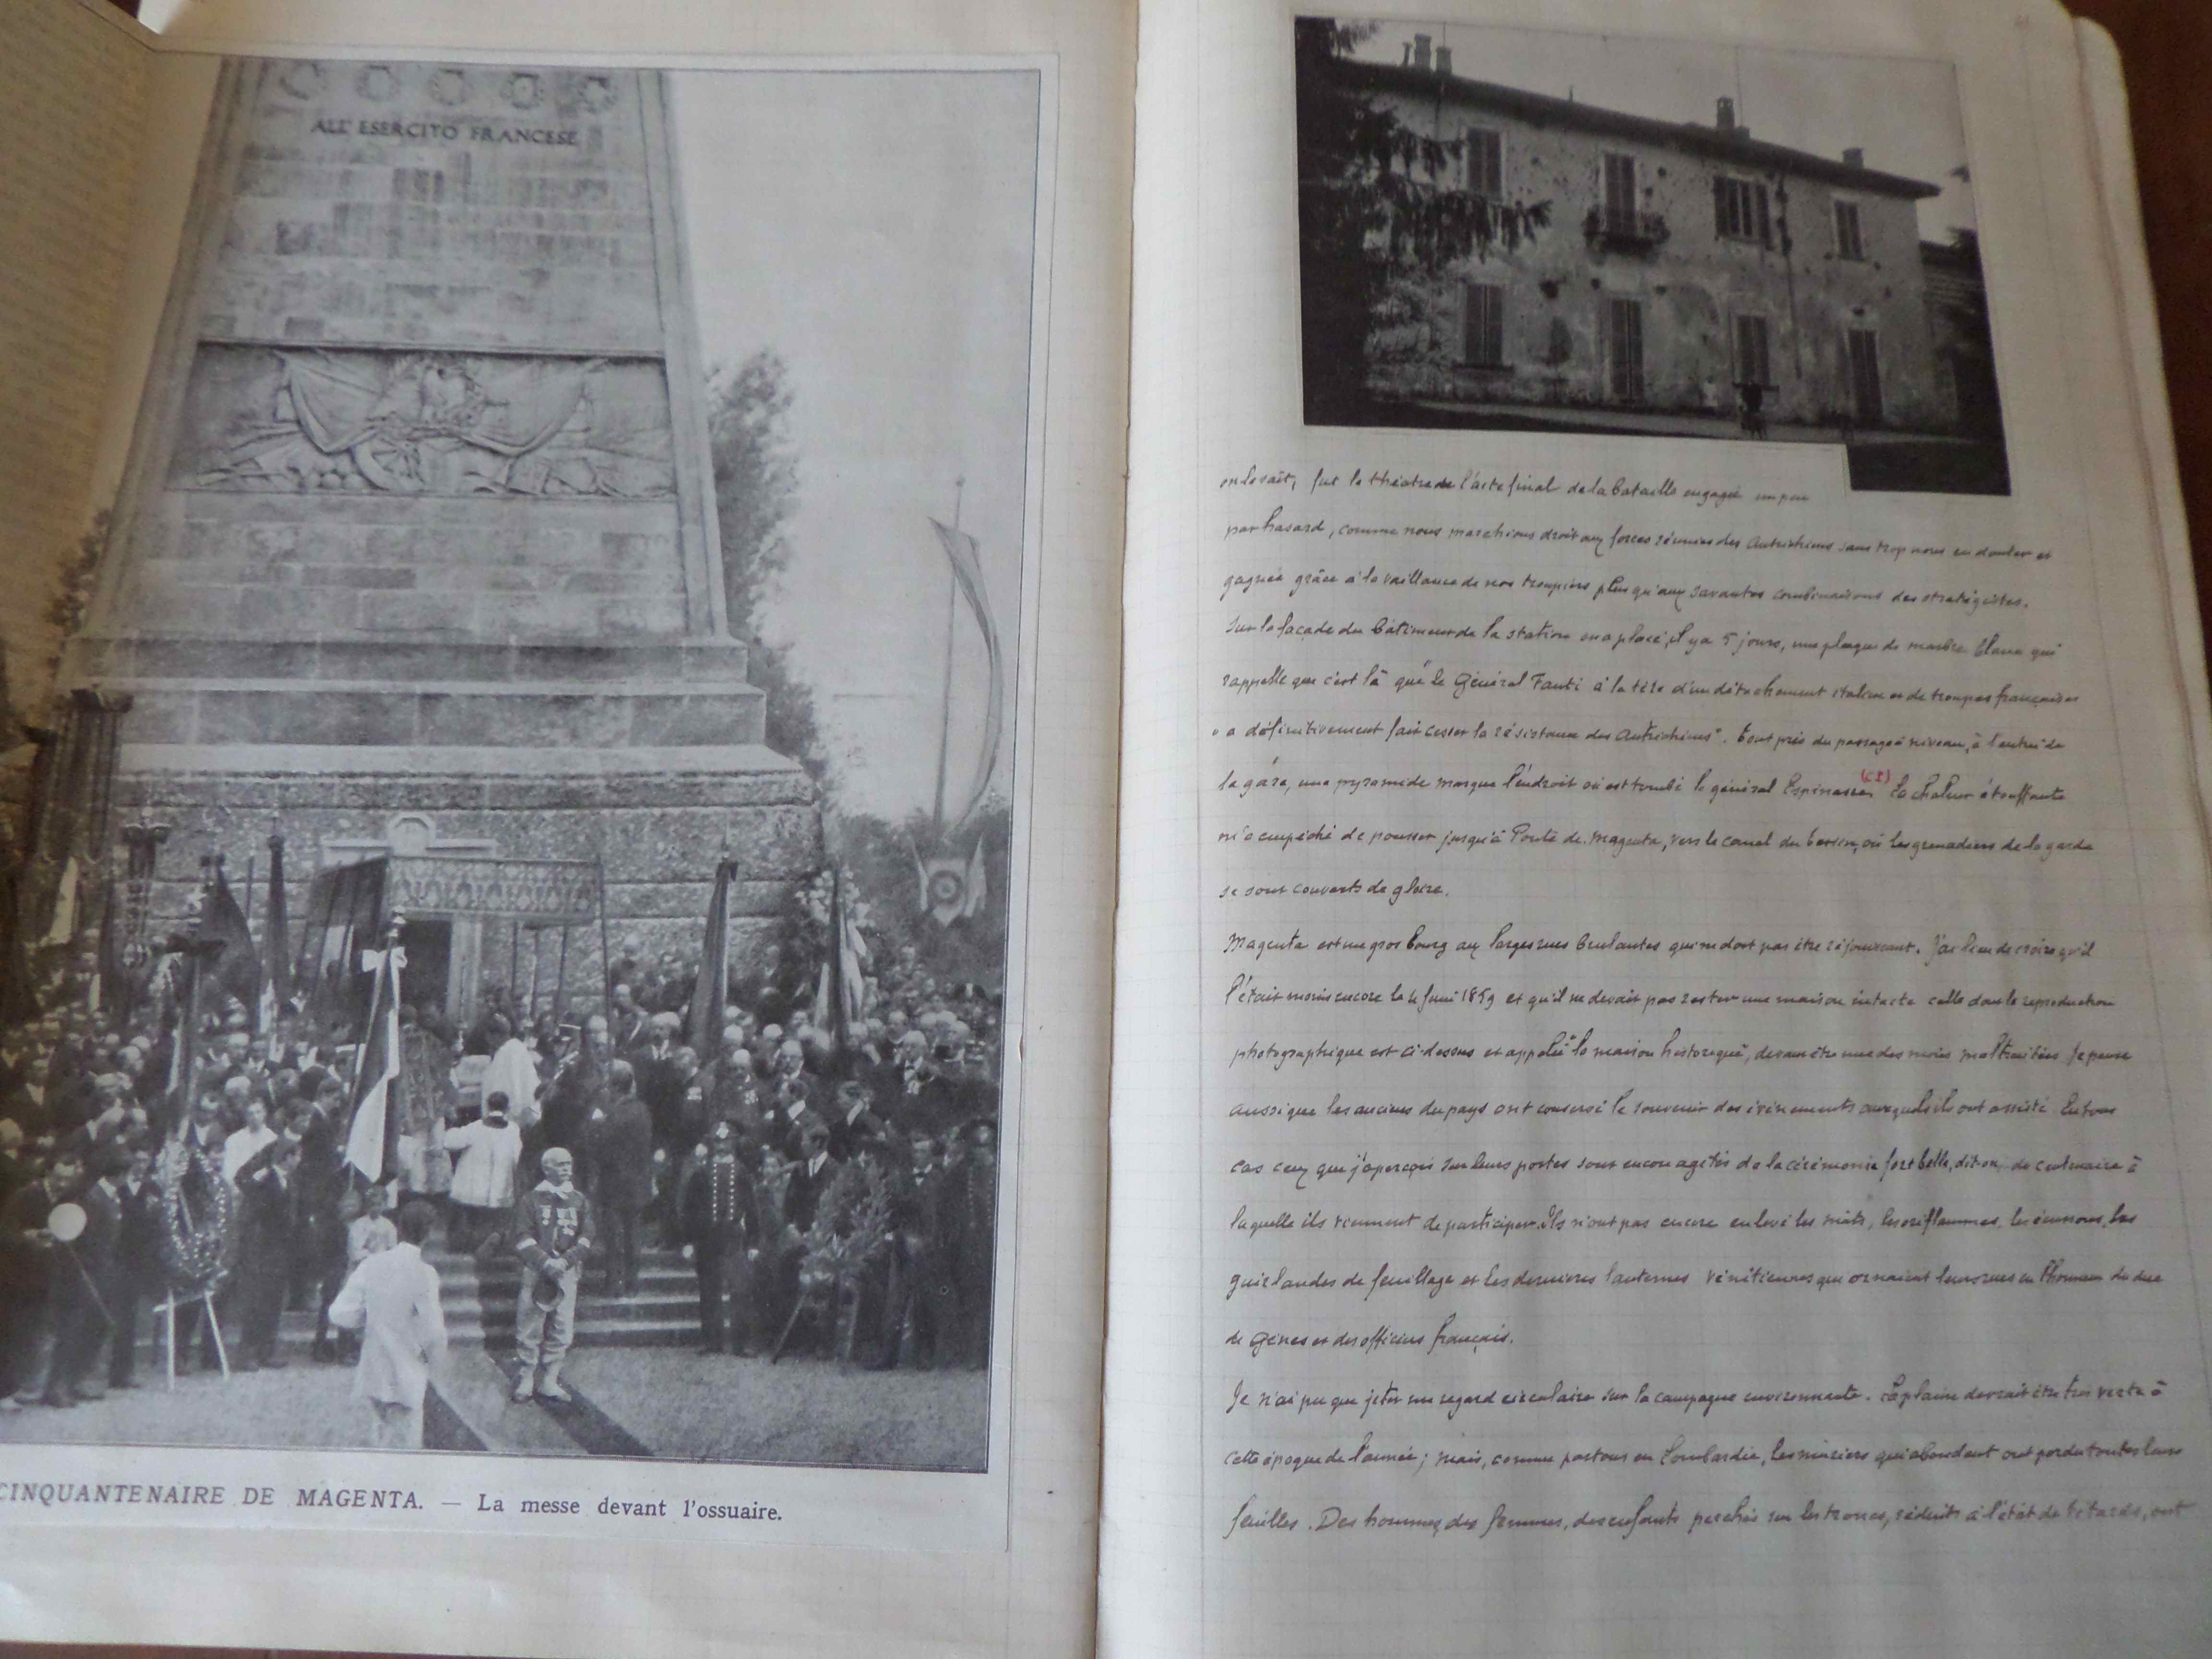 ALL' ESERCITO FRANCESE
CINQUANTENAIRE DE MAGENTA. — La messe devant l'ossuaire.
on le sait, fut le théatre de l'acte final de la bataille engagée un peu
par hasard, comme nous marchions droit aux forces réunies des Autrichiens sans trop nous en douter et
gagnée grâce à la vaillance de nos troupiers plus qu'aux savantes combinaisons des stratégistes.
Sur la façade du bâtiment de la station on a placé, il y a 5 jours, une plaque de marbre blanc qui
rappelle que c'est là que le Général Fanti à la tête d'un détachement italien et de troupes françaises
" a définitivement fait cesser la résistance des Autrichiens". Tout près du passage à niveau, à l'entrée de
la gare, une pyramide marque l'endroit où est tombé le général Espinasse. La chaleur étouffante
m'a empêché de pousser jusqu'à Ponte de Magenta, vers le canal du où les grenadiers de la garde
se sont couverts de gloire.
Magenta est un gros bourg aux larges rues brulantes qui ne doit pas être réjouissant. J'ai lieu de croire qu'il
l'était moins encore le 4 Juin 1859 et qu'il ne devait pas rester une maison intacte celle dont la reproduction
photographique est ci-dessus et appelée "la maison historique", devant être une des moins maltraitées Je pense
aussi que les anciens du pays ont conservé le souvenir des événements auxquels ils ont assisté En tous
cas ceux que j'aperçois sur leurs portes sont encore agités de la cérémonie fort belle, dit-on, du centenaire à
laquelle ils viennent de participer. Ils n'ont pas encore enlevé les mâts, les oriflammes, les écussons, les
guirlandes de feuillage et les dernières lanternes vénitiennes qui ornaient leurs rues en l'honneur du duc
de Gênes et des officiers français.
Je n'ai pu que jeter un regard circulaire sur la campagne environnante. La plaine devrait être très verte à
cette époque de l'année; mais, comme partout en Lombardie, les mûriers qui abondent ont perdu toutes leurs
feuilles. Des hommes, des femmes, des enfants perchés sur les troncs, réduits à l'état de têtards, ont